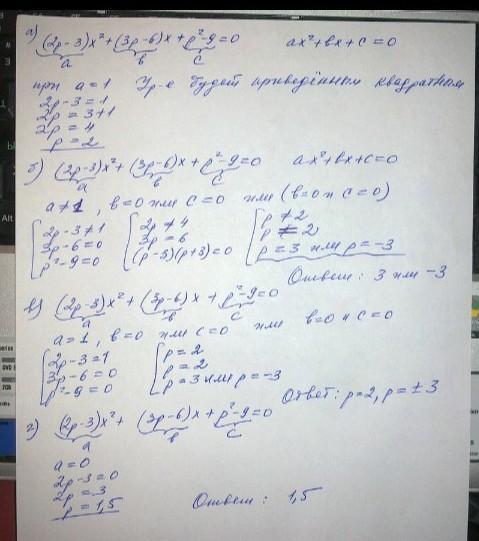 а) (2p-3)x²+(3p-6)x+p²-9=0 ax²+bx+c=0
a b c
при a=1 Ур-е будет приведённым квадратным
2p-3=1
2p=3+1
2p=4
p=2
б) (2p-3)x²+(3p-6)x+p²-9=0 ax²+bx+c=0
a b c
a≠1, b=0 или c=0 или (b=0 и c=0)
2p-3≠1 2p≠4 p≠2
3p-6=0 3p=6 p=2
p²-9=0 (p-3)(p+3)=0 p=3 или p=-3
Ответ: 3 или -3
в) (2p-3)x²+(3p-6)x+p²-9=0
a b c
a=1, b=0 или c=0 или b=0 и c=0
2p-3=1 p=2
3p-6=0 p=2
p²-9=0 p=3 или p=-3
Ответ: p=2, p=±3
г) (2p-3)x²+(3p-6)x+p²-9=0
a b c
a=0
2p-3=0
2p=3
p=1,5 Ответ: 1,5
Alt